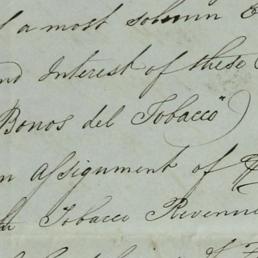 a most solemn
Interest of these
Bonos del Tobacco")
Assignment of
Tobacco Revenue